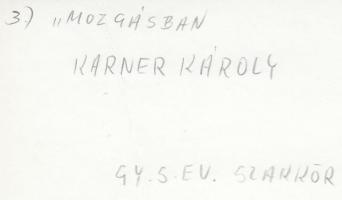 3.) „MOZGÁSBAN
KARNER KÁROLY
GY.S.EV. SZAKKÖR